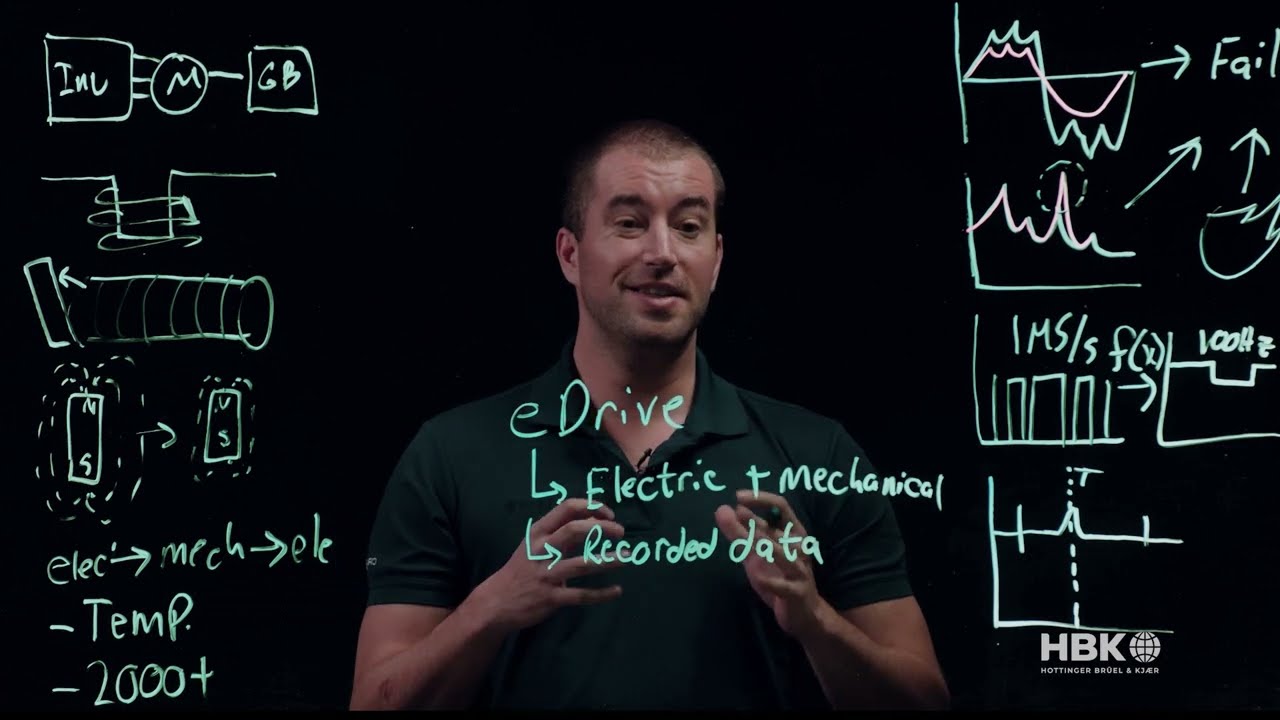 Inv M GB
N S
N S
elec → mech → ele
- Temp.
- 2000+
eDrive
↳ Electric + mechanical
↳ Recorded data
→ Fail
1MS/s f(x) 100Hz
T
HBK
HOTTINGER BRÜEL & KJÆR